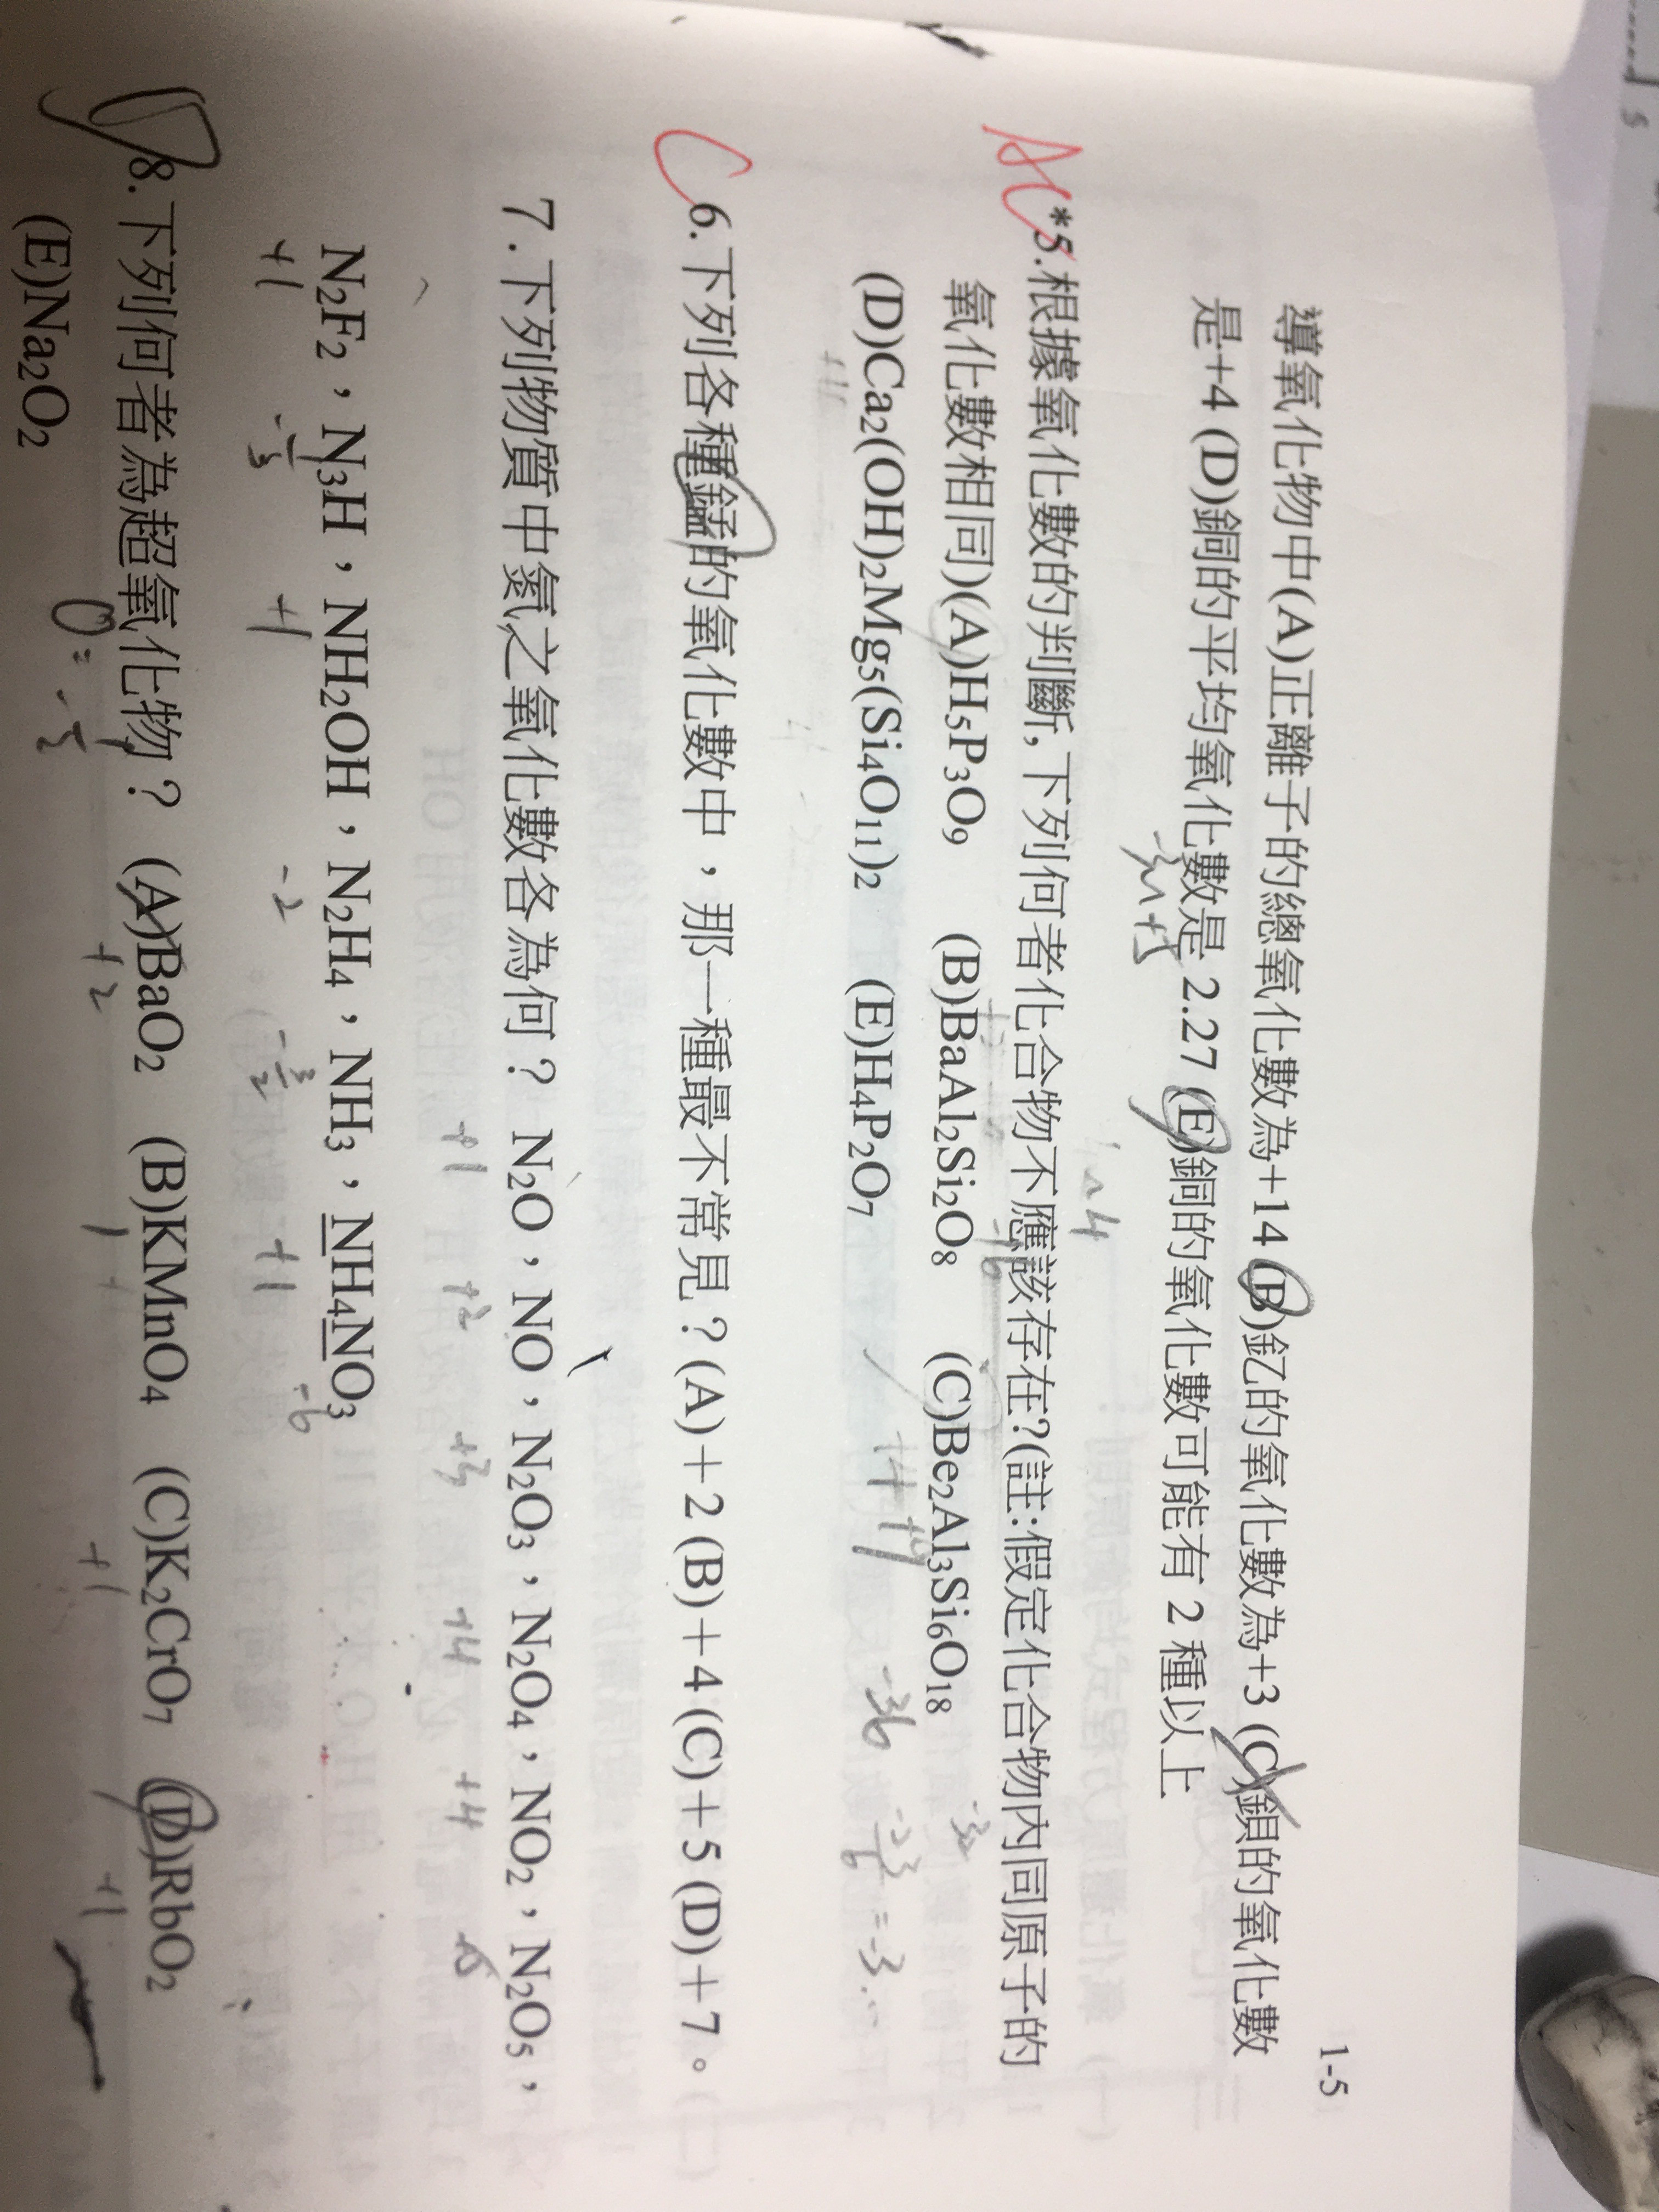 1-5
導氧化物中(A)正離子的總氧化數為+14 (B)釔的氧化數為+3 (C)鋇的氧化數
是+4 (D)銅的平均氧化數是 2.27 (E)銅的氧化數可能有 2 種以上
AC *5.根據氧化數的判斷,下列何者化合物不應該存在?(註:假定化合物內同原子的
氧化數相同)(A)H₅P₃O₉ (B)BaAl₂Si₂O₈ (C)Be₂Al₃Si₆O₁₈
(D)Ca₂(OH)₂Mg₅(Si₄O₁₁)₂ (E)H₄P₂O₇
-36
C 6.下列各種錳的氧化數中,那一種最不常見?(A)+2 (B)+4 (C)+5 (D)+7。
7.下列物質中氮之氧化數各為何? N₂O,NO,N₂O₃,N₂O₄,NO₂,N₂O₅,
+1 +2 +3 +4 +4
N₂F₂,N₃H,NH₂OH,N₂H₄,NH₃,NH₄NO₃
+1 -⅓ -2 +1 -6
8.下列何者為超氧化物? (A)BaO₂ (B)KMnO₄ (C)K₂CrO₇ (D)RbO₂
+2 +1 +1
(E)Na₂O₂